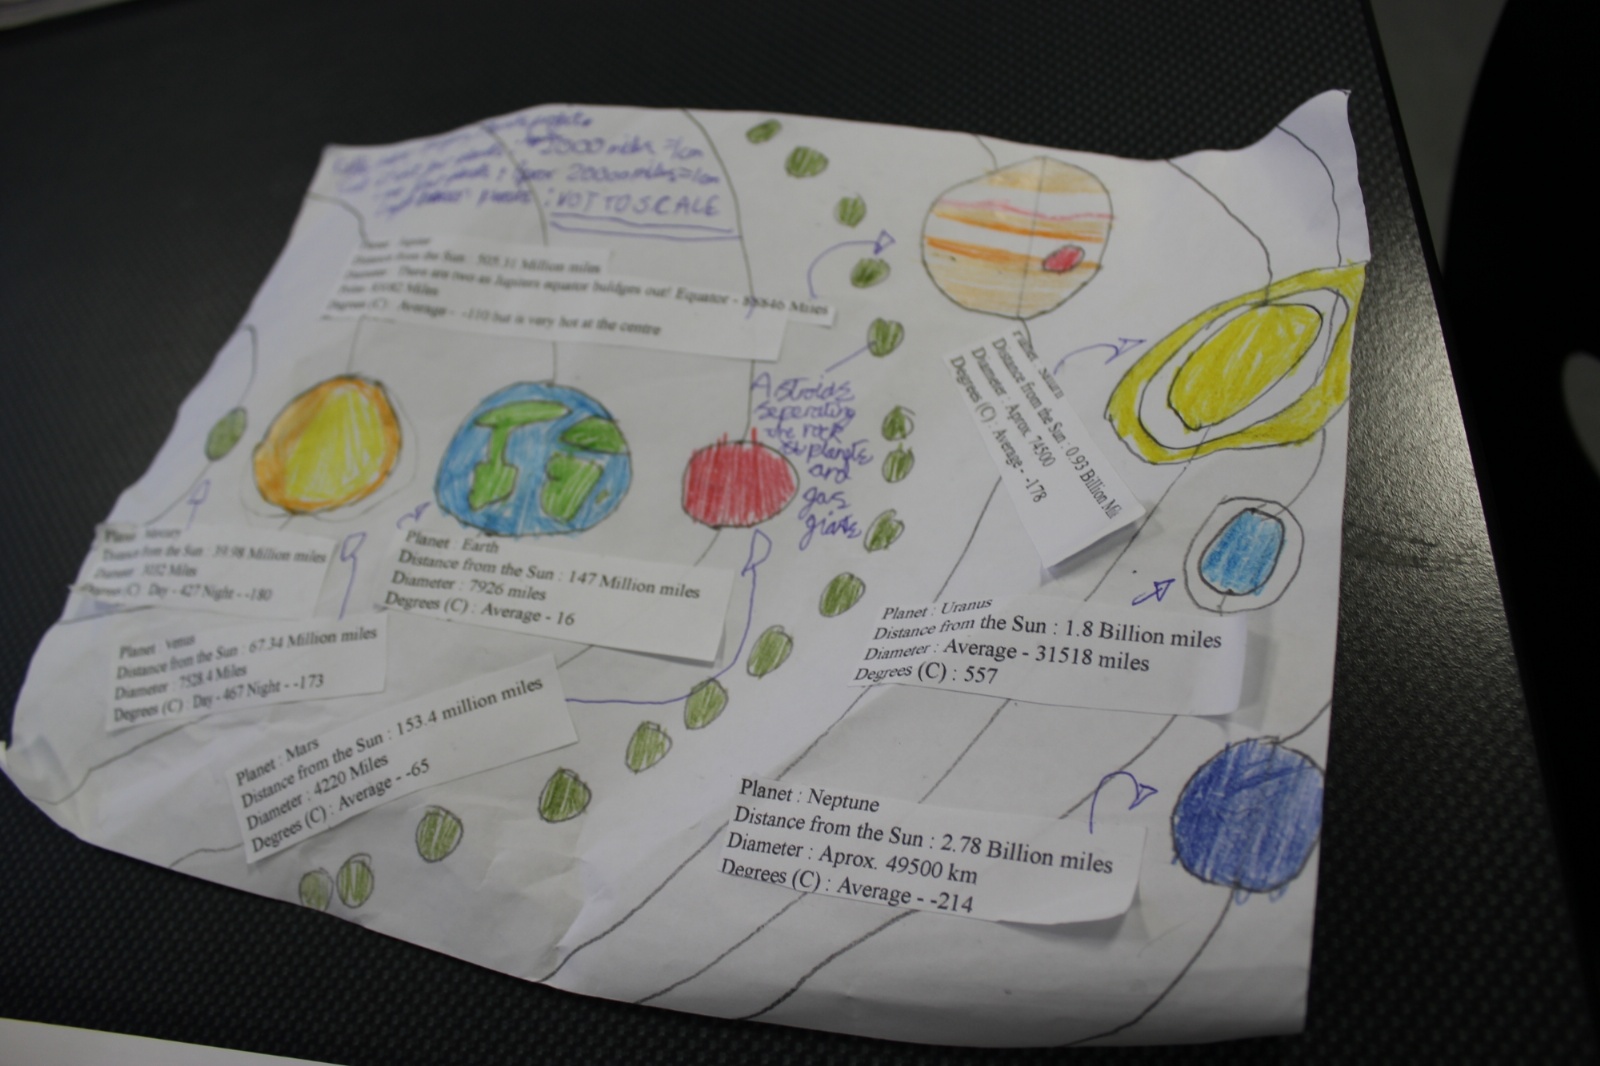 2500 miles = 1cm
20000 miles = 1cm
NOT TO SCALE
Distance from the Sun : 505.31 Million miles
Diameter : There are two as Jupiters equator buldges out! Equator - 88846 Miles
Miles
Degrees (C) : Average - -110 but is very hot at the centre
Astroids
seperating
the rock
planets
and
gas
giants
Planet : Saturn
Distance from the Sun : 0.93 Billion Mil
Diameter : Aprox. 74500
Degrees (C) : Average - -178
Distance from the Sun : 39.98 Million miles
Diameter : 3032 Miles
Degrees (C) : Day - 427 Night - -180
Planet : Earth
Distance from the Sun : 147 Million miles
Diameter : 7926 miles
Degrees (C) : Average - 16
Planet : venus
Distance from the Sun : 67.34 Million miles
Diameter : 7528.4 Miles
Degrees (C) : Day - 467 Night - -173
Planet : Uranus
Distance from the Sun : 1.8 Billion miles
Diameter : Average - 31518 miles
Degrees (C) : 557
Planet : Mars
Distance from the Sun : 153.4 million miles
Diameter : 4220 Miles
Degrees (C) : Average - -65
Planet : Neptune
Distance from the Sun : 2.78 Billion miles
Diameter : Aprox. 49500 km
Degrees (C) : Average - -214